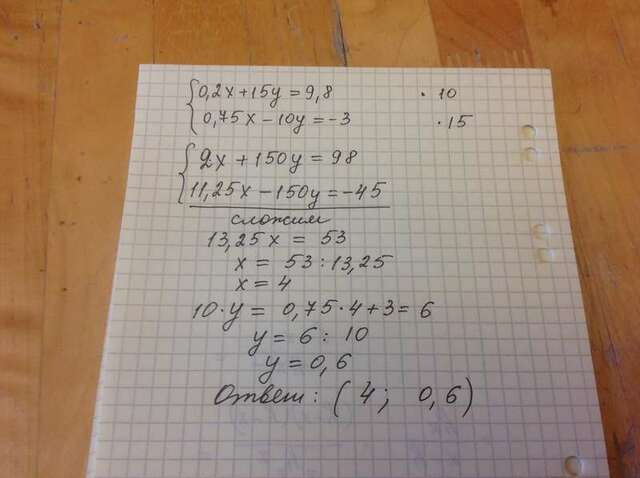 0,2x+15y=9,8 · 10
0,75x-10y=-3 · 15
2x+150y=98
11,25x-150y=-45
сложим
13,25x = 53
x = 53:13,25
x=4
10·y= 0,75·4+3=6
y=6:10
y=0,6
Ответ: (4; 0,6)